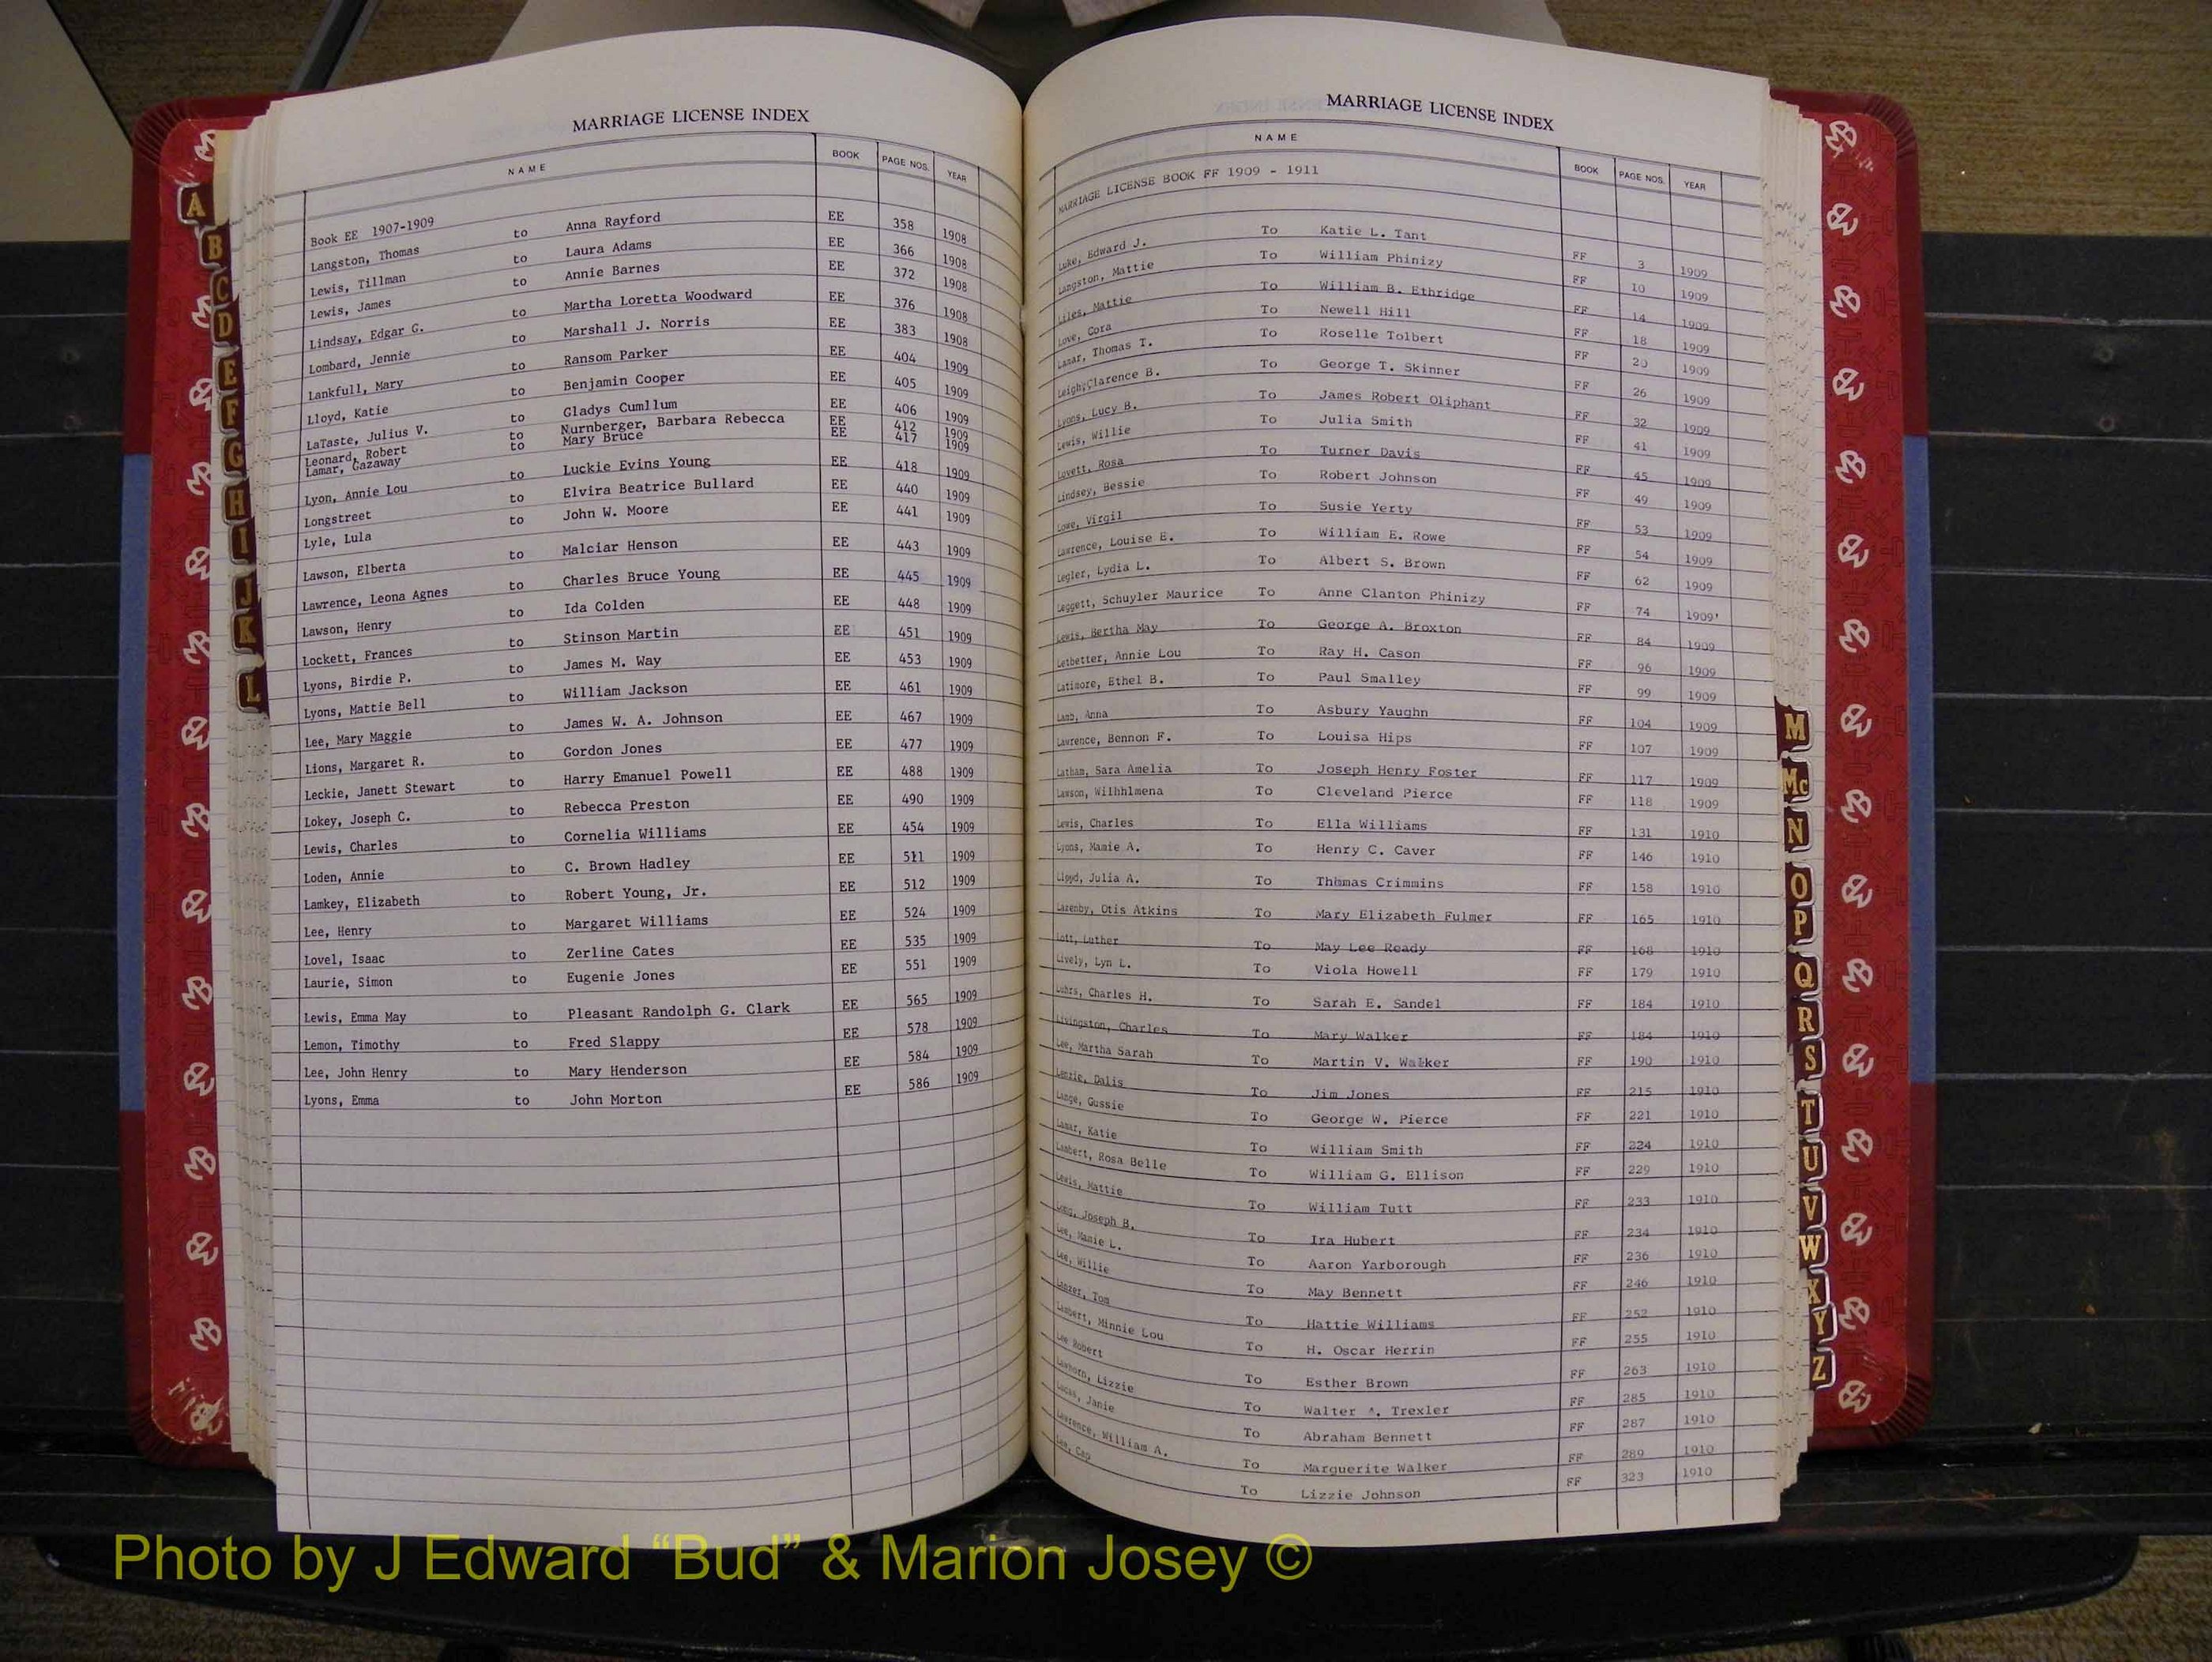 MARRIAGE LICENSE INDEX
NAME BOOK PAGE NOS. YEAR
Book EE 1907-1909
Langston, Thomas to Anna Rayford EE 358 1908
Lewis, Tillman to Laura Adams EE 366 1908
Lewis, James to Annie Barnes EE 372 1908
Lindsay, Edgar G. to Martha Loretta Woodward EE 376 1908
Lombard, Jennie to Marshall J. Norris EE 383 1908
Lankfull, Mary to Ransom Parker EE 404 1909
Lloyd, Katie to Benjamin Cooper EE 405 1909
LaTaste, Julius V. to Gladys Cumllum EE 406 1909
Leonard, Robert to Nurnberger, Barbara Rebecca EE 412 1909
Lamar, Gazaway to Mary Bruce EE 417 1909
Lyon, Annie Lou to Luckie Evins Young EE 418 1909
Longstreet to Elvira Beatrice Bullard EE 440 1909
Lyle, Lula to John W. Moore EE 441 1909
Lawson, Elberta to Malciar Henson EE 443 1909
Lawrence, Leona Agnes to Charles Bruce Young EE 445 1909
Lawson, Henry to Ida Colden EE 448 1909
Lockett, Frances to Stinson Martin EE 451 1909
Lyons, Birdie P. to James M. Way EE 453 1909
Lyons, Mattie Bell to William Jackson EE 461 1909
Lee, Mary Maggie to James W. A. Johnson EE 467 1909
Lions, Margaret R. to Gordon Jones EE 477 1909
Leckie, Janett Stewart to Harry Emanuel Powell EE 488 1909
Lokey, Joseph C. to Rebecca Preston EE 490 1909
Lewis, Charles to Cornelia Williams EE 454 1909
Loden, Annie to C. Brown Hadley EE 511 1909
Lamkey, Elizabeth to Robert Young, Jr. EE 512 1909
Lee, Henry to Margaret Williams EE 524 1909
Lovel, Isaac to Zerline Cates EE 535 1909
Laurie, Simon to Eugenie Jones EE 551 1909
Lewis, Emma May to Pleasant Randolph G. Clark EE 565 1909
Lemon, Timothy to Fred Slappy EE 578 1909
Lee, John Henry to Mary Henderson EE 584 1909
Lyons, Emma to John Morton EE 586 1909
A
B
C
D
E
F
G
H
I
J
K
L
MARRIAGE LICENSE INDEX
NAME BOOK PAGE NOS. YEAR
MARRIAGE LICENSE BOOK FF 1909 - 1911
Luke, Edward J. To Katie L. Tant FF 3 1909
Langston, Mattie To William Phinizy FF 10 1909
Liles, Mattie To William B. Ethridge FF 14 1909
Love, Cora To Newell Hill FF 18 1909
Lamar, Thomas T. To Roselle Tolbert FF 20 1909
Leigh, Clarence B. To George T. Skinner FF 26 1909
Lyons, Lucy B. To James Robert Oliphant FF 32 1909
Lewis, Willie To Julia Smith FF 41 1909
Lovett, Rosa To Turner Davis FF 45 1909
Lindsey, Bessie To Robert Johnson FF 49 1909
Lowe, Virgil To Susie Yerty FF 53 1909
Lawrence, Louise E. To William E. Rowe FF 54 1909
Legler, Lydia L. To Albert S. Brown FF 62 1909
Leggett, Schuyler Maurice To Anne Clanton Phinizy FF 74 1909'
Lewis, Bertha May To George A. Broxton FF 84 1909
Letbetter, Annie Lou To Ray H. Cason FF 96 1909
Latimore, Ethel B. To Paul Smalley FF 99 1909
Lamb, Anna To Asbury Yaughn FF 104 1909
Lawrence, Bennon F. To Louisa Hips FF 107 1909
Latham, Sara Amelia To Joseph Henry Foster FF 117 1909
Lawson, Wilhhlmena To Cleveland Pierce FF 118 1909
Lewis, Charles To Ella Williams FF 131 1910
Lyons, Mamie A. To Henry C. Caver FF 146 1910
Lloyd, Julia A. To Thomas Crimmins FF 158 1910
Lazenby, Otis Atkins To Mary Elizabeth Fulmer FF 165 1910
Lott, Luther To May Lee Ready FF 168 1910
Lively, Lyn L. To Viola Howell FF 179 1910
Luhrs, Charles H. To Sarah E. Sandel FF 184 1910
Livingston, Charles To Mary Walker FF 184 1910
Lee, Martha Sarah To Martin V. Walker FF 190 1910
Lenzie, Dalis To Jim Jones FF 215 1910
Lange, Gussie To George W. Pierce FF 221 1910
Lamar, Katie To William Smith FF 224 1910
Lambert, Rosa Belle To William G. Ellison FF 229 1910
Lewis, Mattie To William Tutt FF 233 1910
Long, Joseph B. To Ira Hubert FF 234 1910
Lee, Mamie L. To Aaron Yarborough FF 236 1910
Lee, Willie To May Bennett FF 246 1910
Tom To Hattie Williams FF 252 1910
Lambert, Minnie Lou To H. Oscar Herrin FF 255 1910
Lee Robert To Esther Brown FF 263 1910
Lawhorn, Lizzie To Walter Trexler FF 285 1910
Lucas, Janie To Abraham Bennett FF 287 1910
Lawrence, William A. To Marguerite Walker FF 289 1910
Lee, Cap To Lizzie Johnson FF 323 1910
M
Mc
N
O
P
Q
R
S
T
U
V
W
X
Y
Z
Photo by J Edward “Bud” & Marion Josey ©